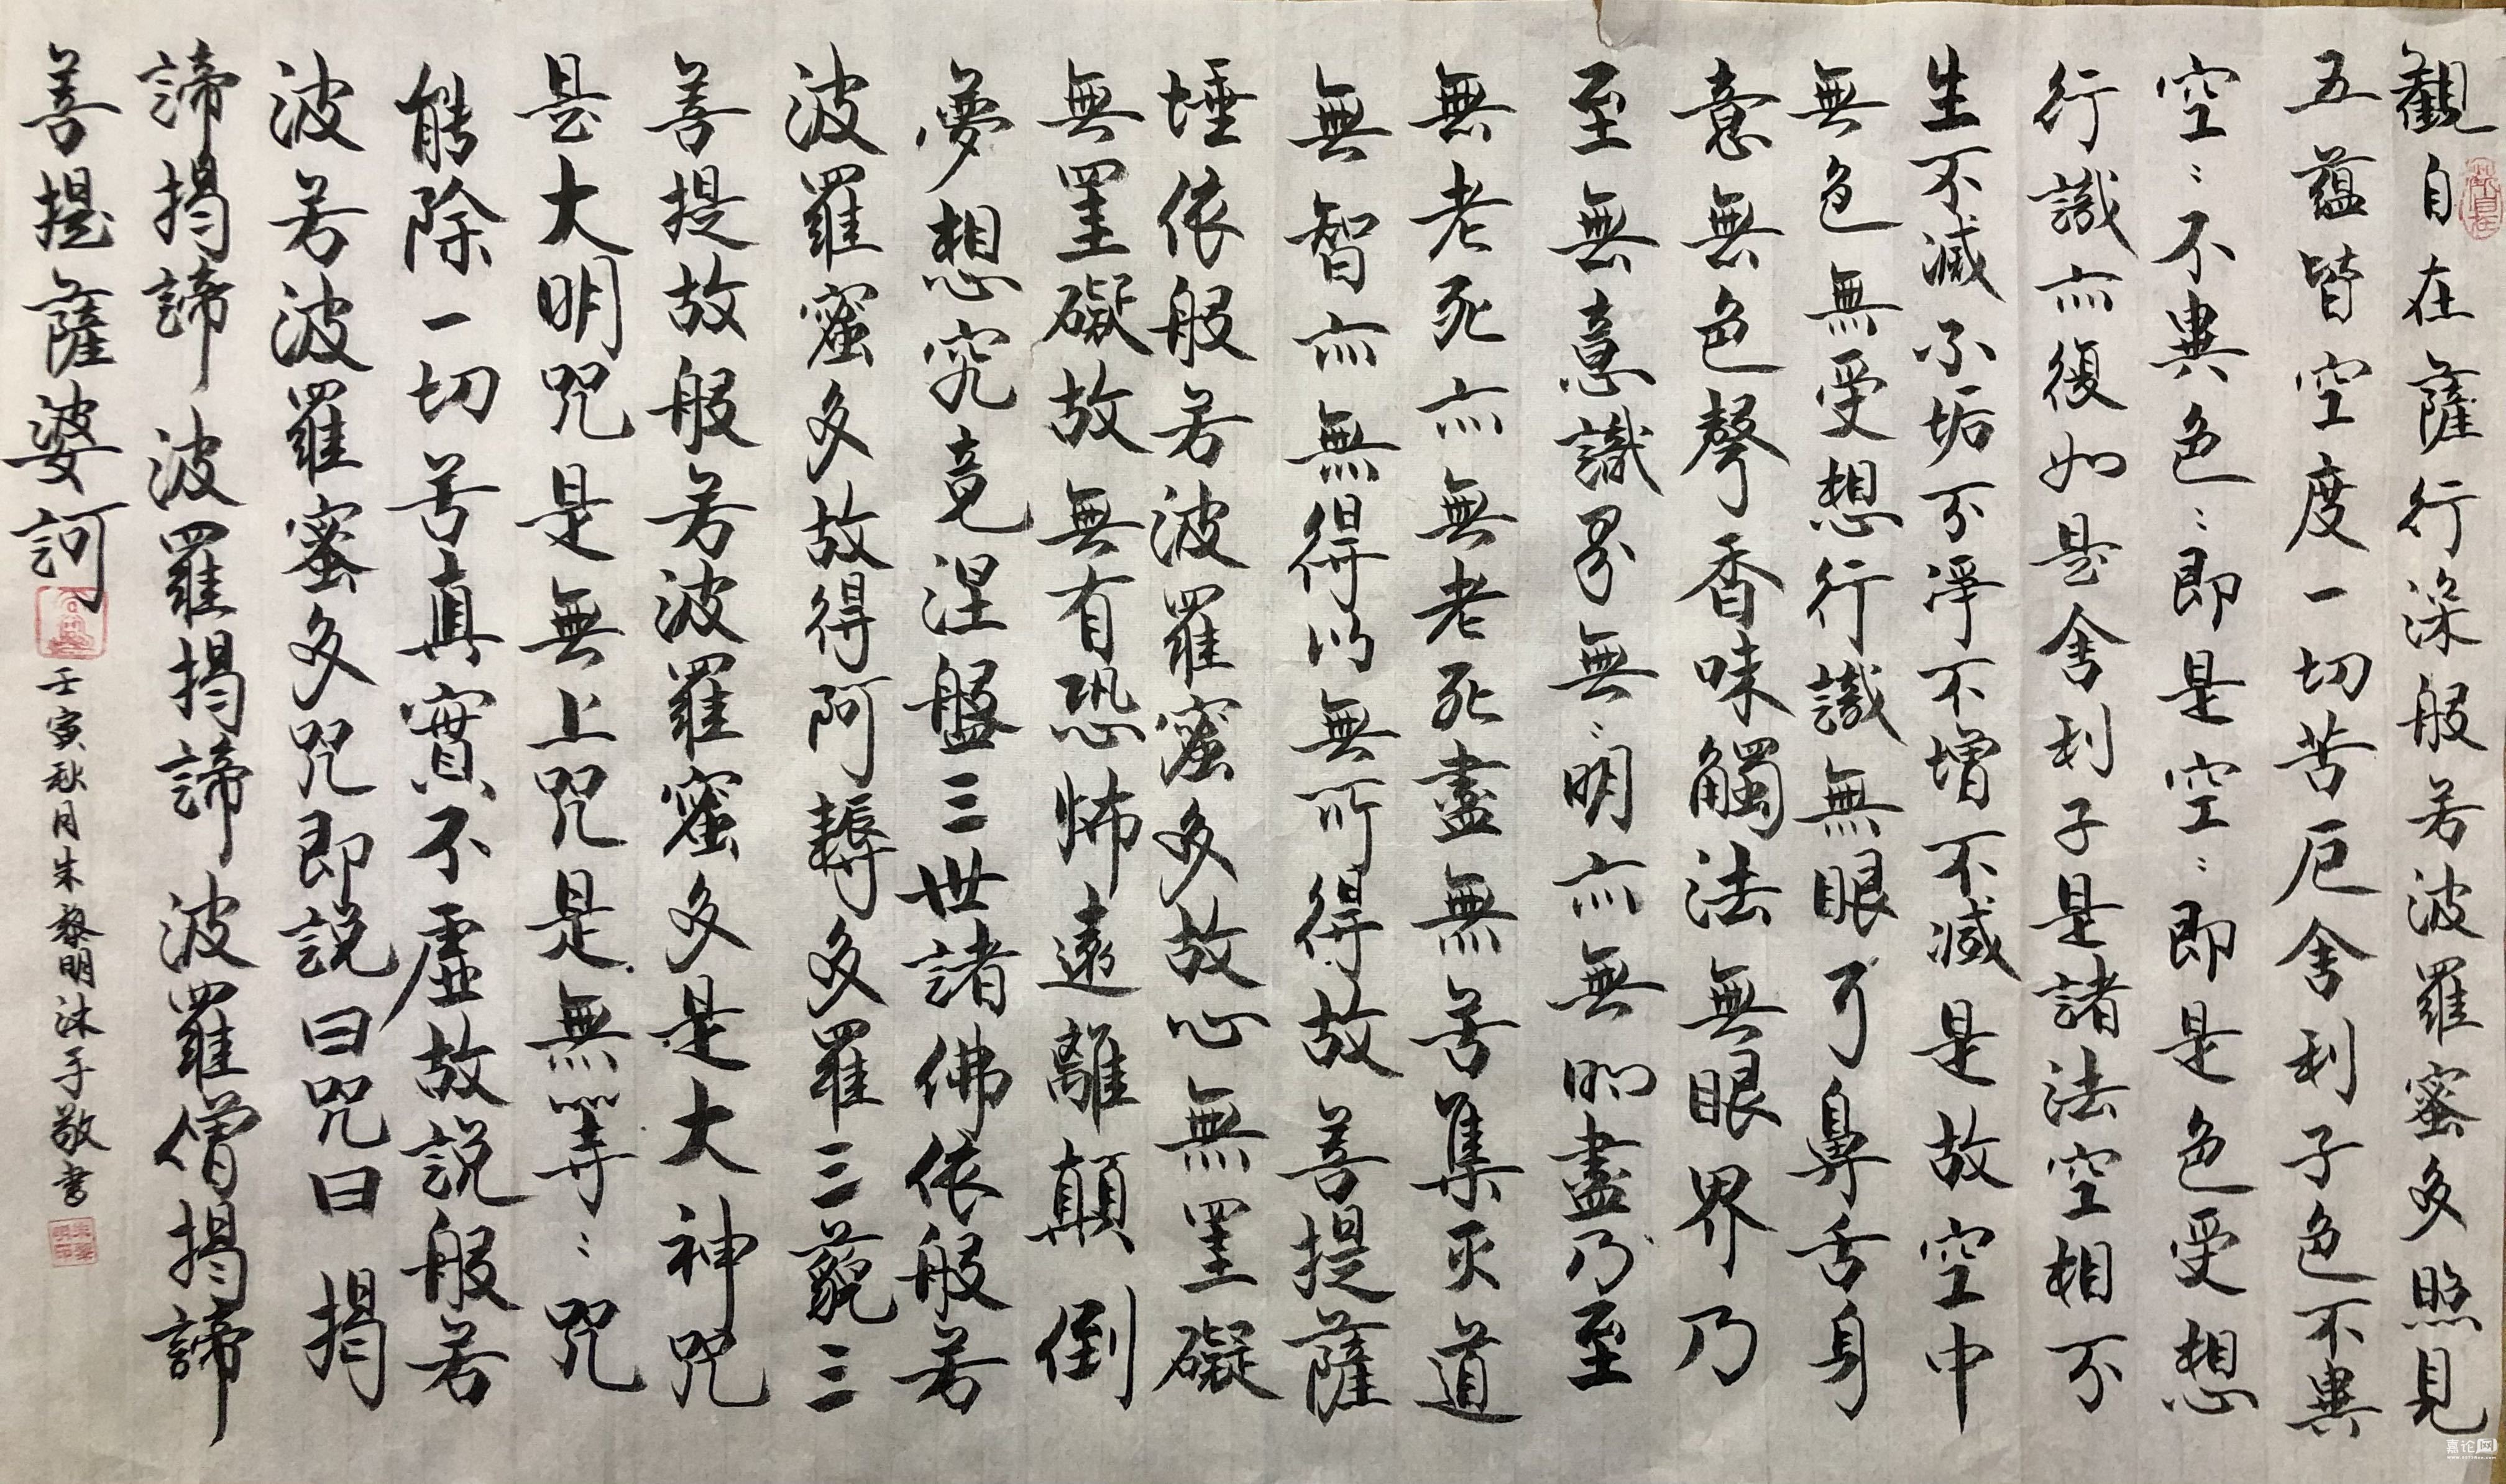 觀自在薩行深般若波羅蜜多照見
五蘊皆空度一切苦厄舍利子色不異
空〻不異色〻即是空〻即是色受想
行識亦復如是舍利子是諸法空相不
生不滅不垢不淨不增不減是故空中
無色無受想行識無眼耳鼻舌身
意無色聲香味觸法無眼界乃
至無意識界無〻明亦無無明盡乃至
無老死亦無老死盡無苦集灭道
無智亦無得以無所得故菩提薩
埵依般若波羅蜜多故心無罣礙
無罣礙故無有恐怖遠離顛倒
夢想究竟涅盤三世諸佛依般若
波羅蜜多故得阿耨多羅三藐三
菩提故般若波羅蜜多是大神咒
是大明咒是無上咒是無等〻咒
能除一切苦真實不虛故説般若
波若波羅蜜多咒即説曰咒曰揭
諦揭諦波羅揭諦波羅僧揭諦
菩提薩婆訶
壬寅秋月朱黎明沐手敬書
嘉论网